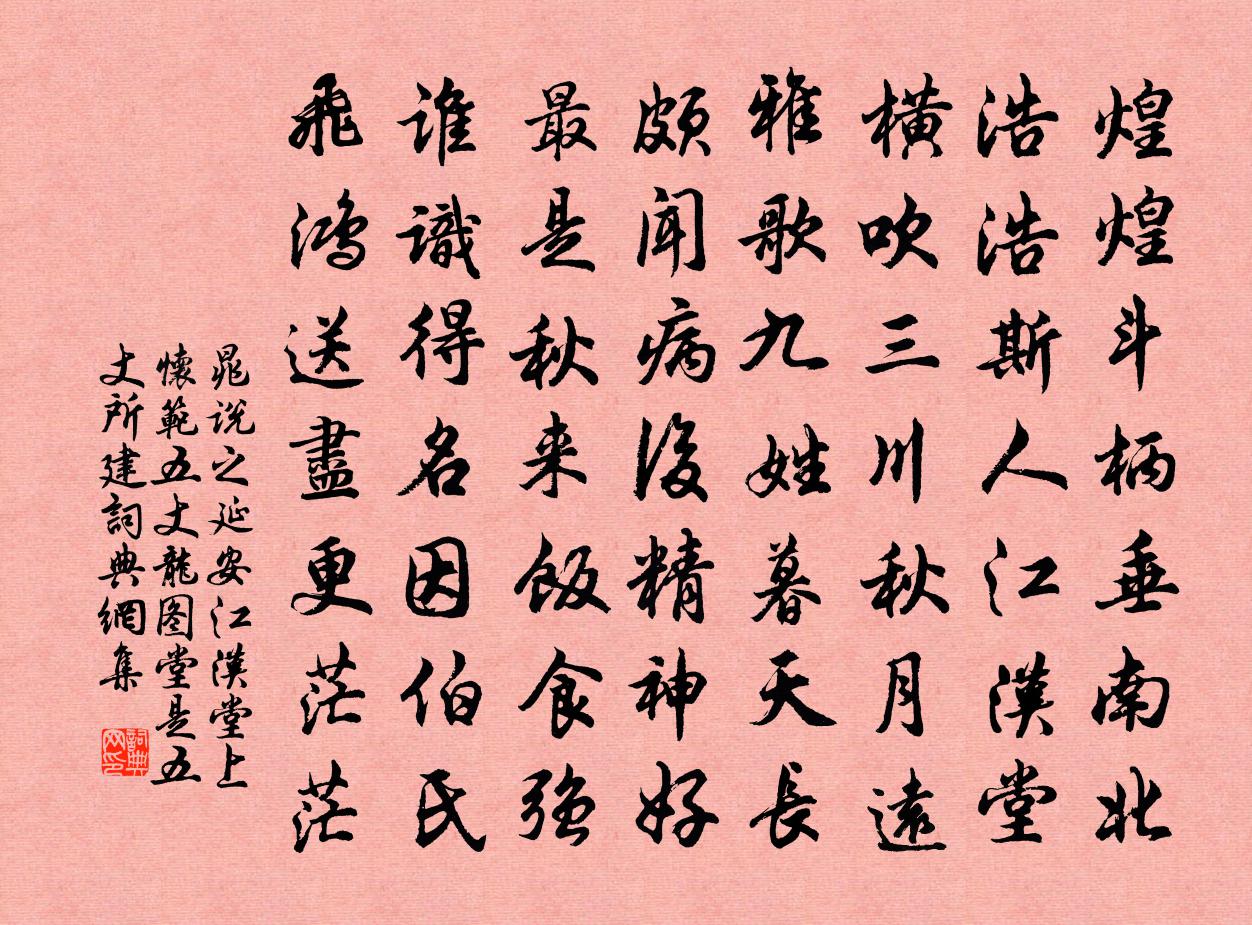 煌煌斗柄垂南北
浩浩斯人江漢堂
橫吹三川秋月遠
雅歌九姓暮天長
頗聞病後精神好
最是秋来飯食強
誰識得名因伯氏
飛鴻送盡更茫茫
晁說之延安江漢堂上
懷範五丈龍图堂是五
丈所建詞典網集
詞典
网印